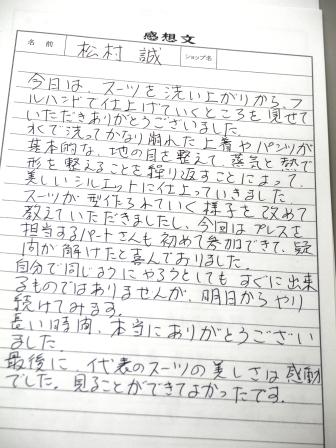 感想文
名前 松村 誠 ショップ名
今日は、スーツを洗い上がりから、フ
ルハンドで仕上げていくところを見せて
いただきありがとうございました。
水で洗ってかなり崩れた上着やパンツが
基本的な、地の目を整えて、蒸気と熱で
形を整えることを繰り返すことによって、
美しいシルエットに仕上っていきました。
スーツが型作られていく様子を改めて
教えていただきましたし、今回はプレスを
担当するパートさんも初めて参加できて、疑
問が解けたと喜んでおりました。
自分で同じようにやろうとしてもすぐに出来
るものではありませんが、明日からやり
続けてみます。
長い時間、本当にありがとうござい
ました
最後に、代表のスーツの美しさは感動
でした。見ることができてよかったです。